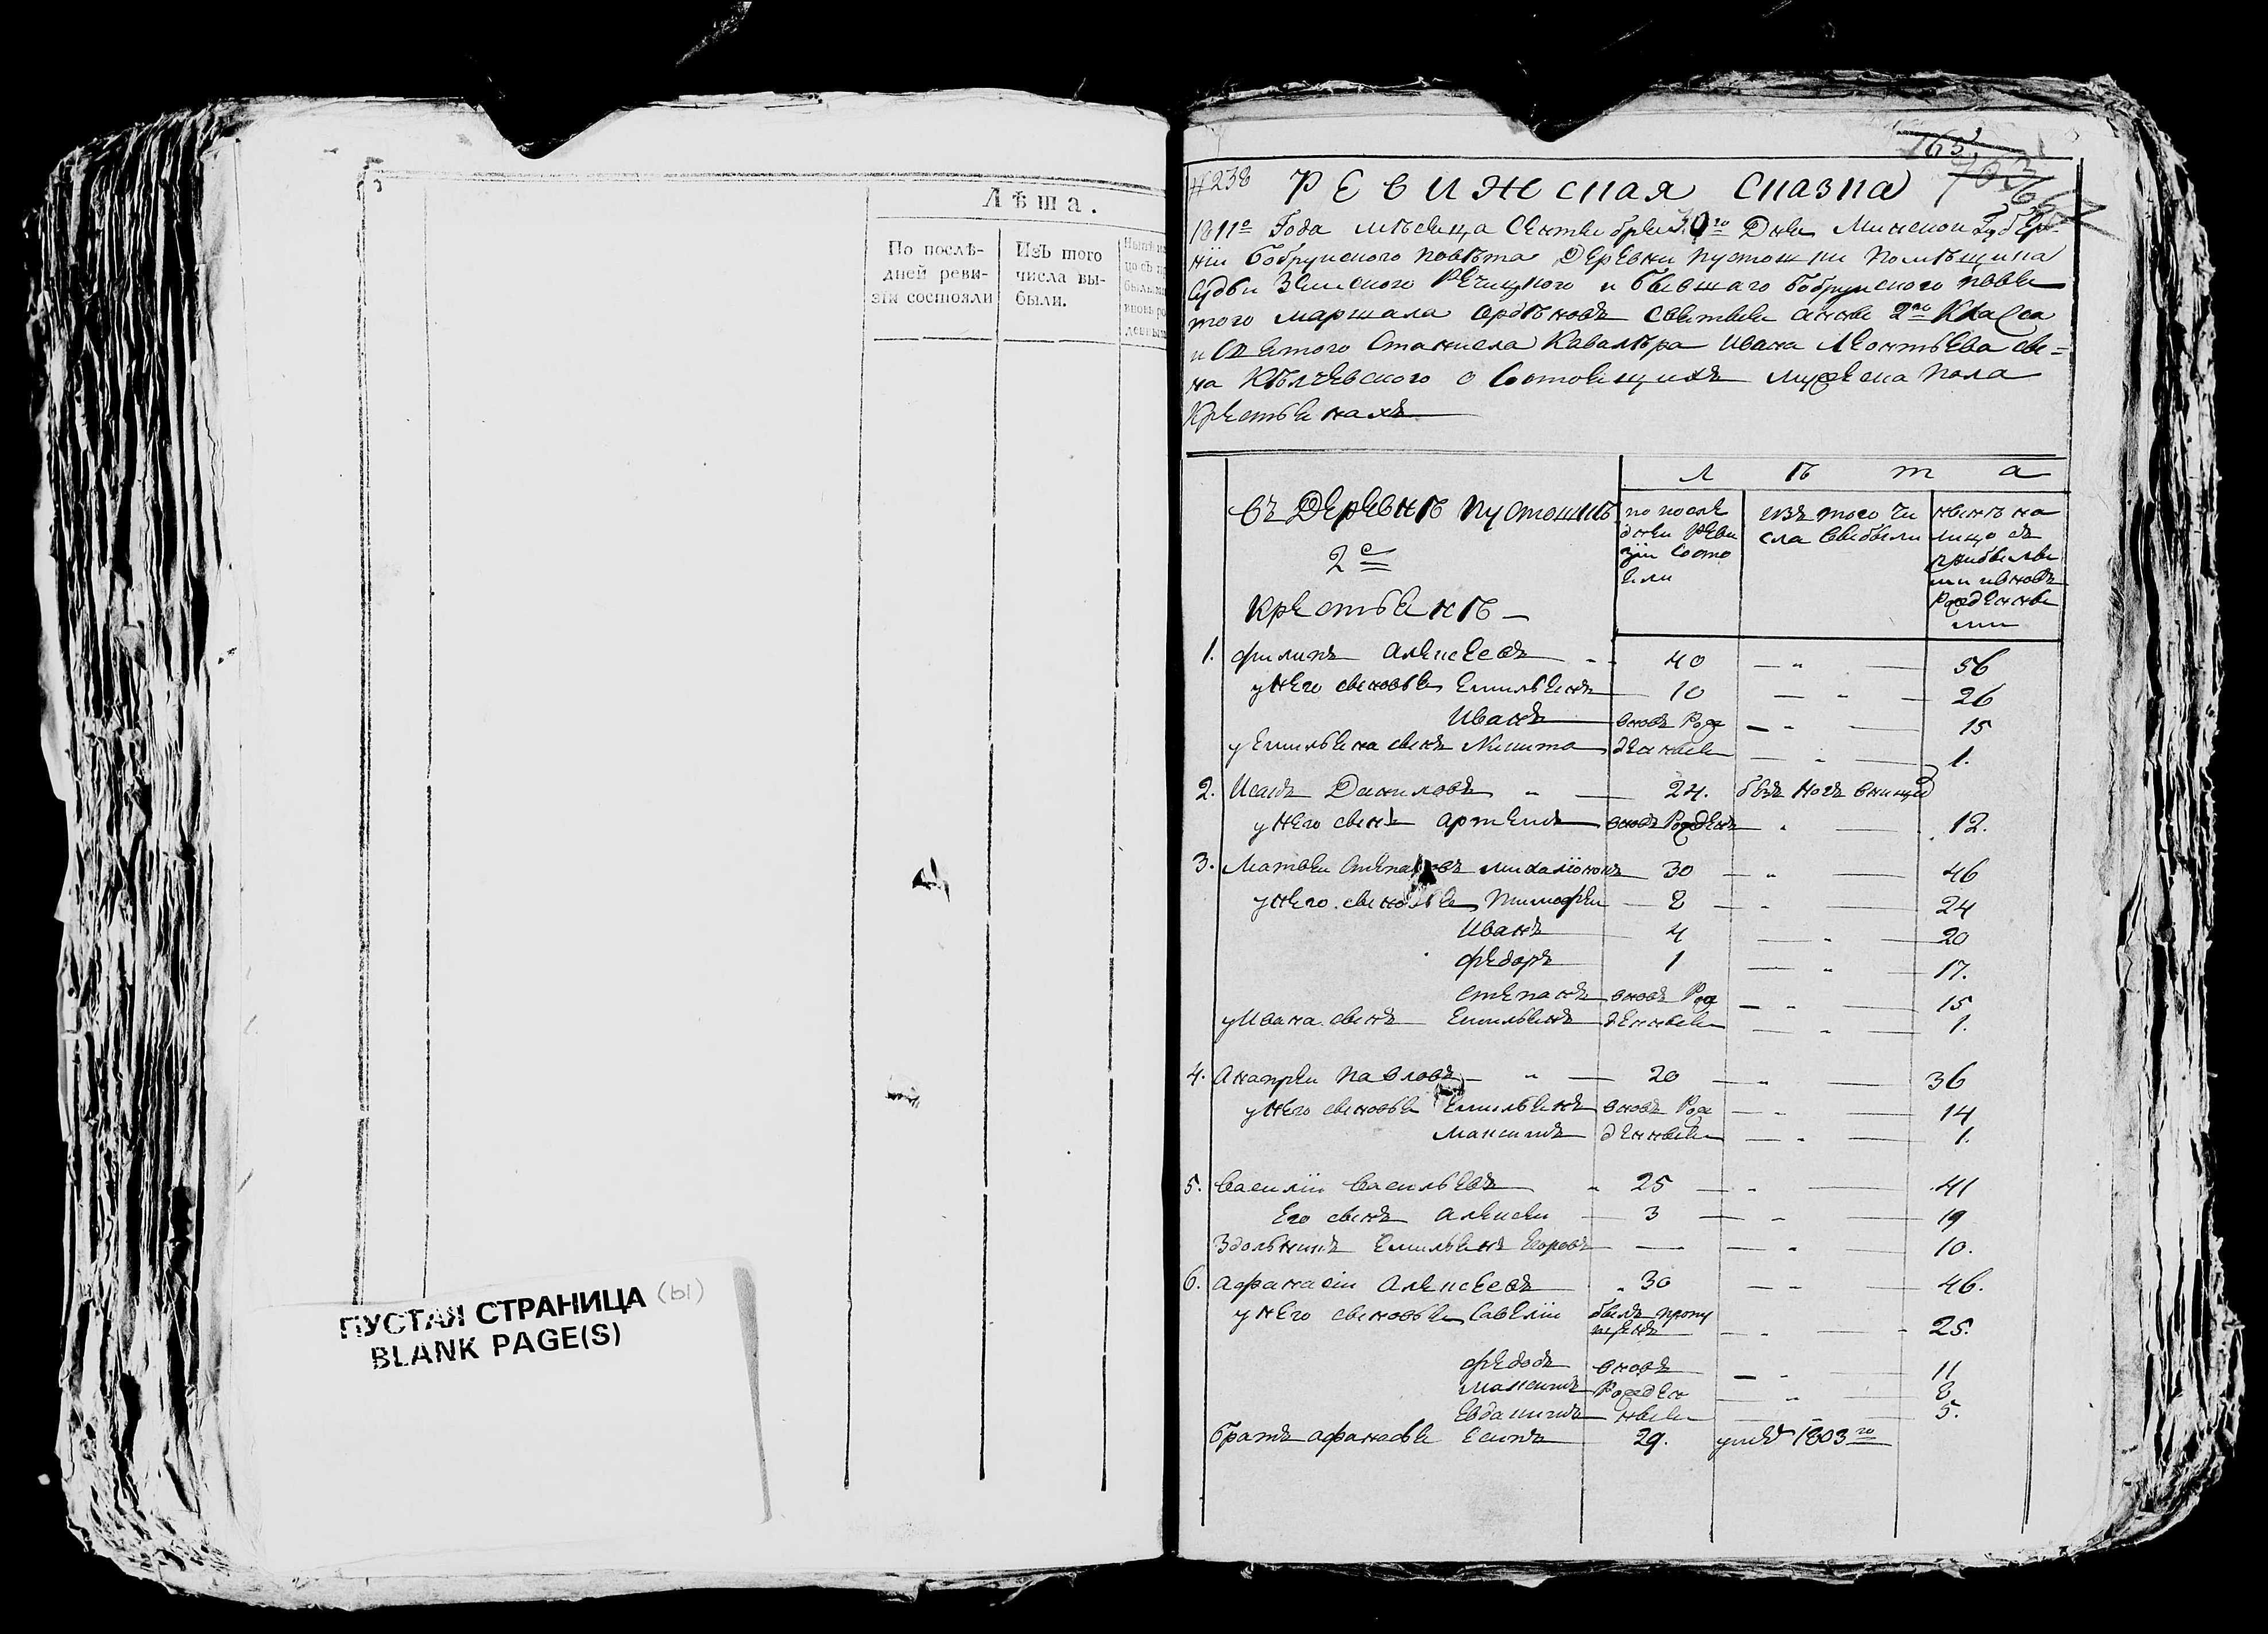 Лѣта.
По послѣ-
дней реви-
зіи состояли
Изъ того
числа вы-
были.
ПУСТАЯ СТРАНИЦА (ы)
BLANK PAGE(S)
#238 Ревижская сказка
1811го Года мѣсяца Сентября 30го Дня Минской Губер
ніи Бобруйского повѣта Деревни пустошки помѣщика
Судьи Земского Речицкого и бывшаго бобруйского пове
тового маршала ордѣновъ Святыя анны 2го Класса
и Святого Станисла Кавалѣра Ивана Леонтьева сы=
на Кѣлчевского о Состоящихъ мужеска пола
Крестьянахъ
Лѣта
въ Деревнѣ пустошкѣ
2е
крестьянѣ
по после
дней Реви
зіи состо
яли
изъ того чи
сла выбыли
нынѣ на
лицо съ
прибылы
ми и вновь
Рожденны
ми
1. филипъ алексеевъ 40 — " — 56
у него сыновья Емильянъ 10 — " — 26
Иванъ вновь Рож — " — 15
у Емильяна сынъ Микита денные — " — 1.
2. Исакъ Даниловъ " 24.
у него сынъ артемъ вновь Рожденъ " — 12.
3. Матвей Степановъ 30 — " — 46
у него сыновья тимофей 8 — " — 24
Иванъ 4 — " — 20
федоръ 1 — " — 17.
степанъ вновь Рож — " — 15
у Ивана сынъ Емильянъ денные — " — 1.
4. Анапрей павловъ — " — 20 — " — 36
у него сыновья Емильянъ вновь Рож — " — 14
максимъ денные — " — 1.
5. василій васильевъ " 25 — " — 41
Его сынъ алексей 3 — " — 19
Здольникъ Емильянъ Егоровъ — — " — 10.
6. афанасій алексеевъ " 30 — " — 46.
у него сыновья Савелій былъ пропу
щенъ — " — 25.
федосъ вновь — " — 11
максимъ Рожден — " — 8
Евдакимъ ные — " — 5.
братъ афанасья Есипъ 29. умеръ 1803го